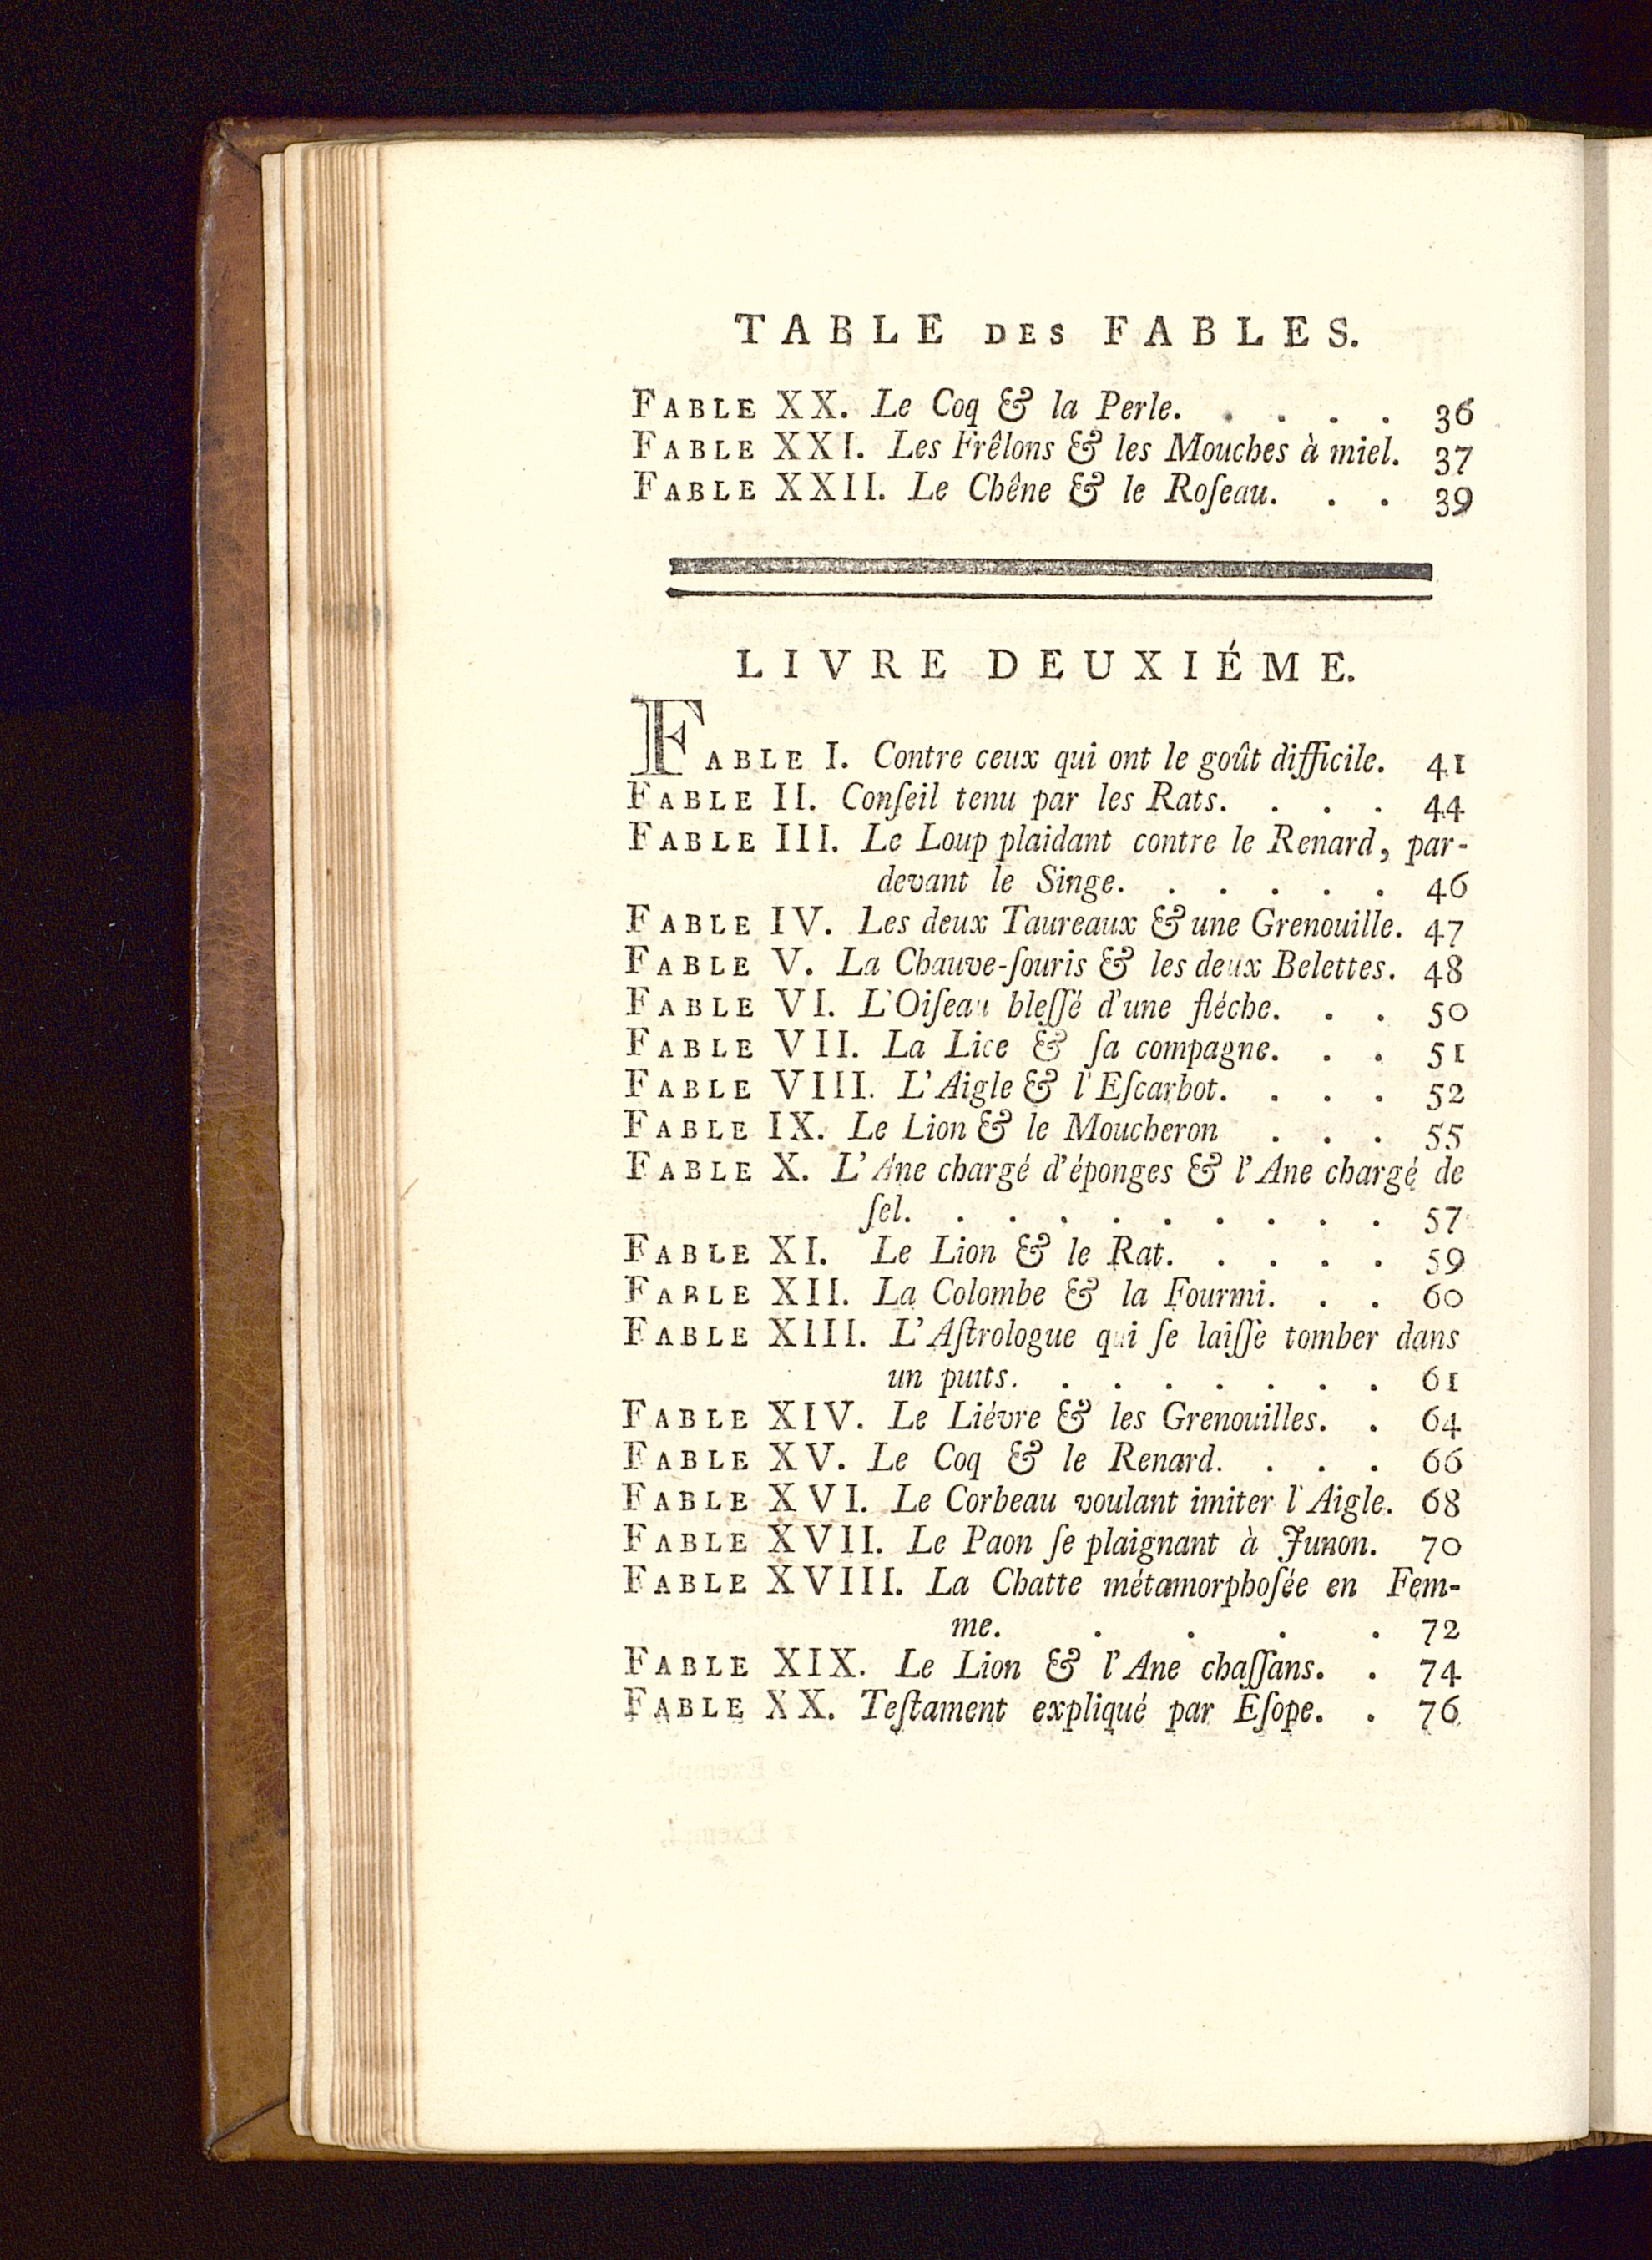 TABLE DES FABLES.
FABLE XX. Le Coq & la Perle. . . . . 36
FABLE XXI. Les Frêlons & les Mouches à miel. 37
FABLE XXII. Le Chêne & le Roſeau. . . 39
LIVRE DEUXIÉME.
FABLE I. Contre ceux qui ont le goût difficile. 41
FABLE II. Conſeil tenu par les Rats. . . . 44
FABLE III. Le Loup plaidant contre le Renard, par-
devant le Singe. . . . . . 46
FABLE IV. Les deux Taureaux & une Grenouille. 47
FABLE V. La Chauve-ſouris & les deux Belettes. 48
FABLE VI. L'Oiſeau bleſſé d'une fléche. . . 50
FABLE VII. La Lice & ſa compagne. . . 51
FABLE VIII. L'Aigle & l'Eſcarbot. . . . 52
FABLE IX. Le Lion & le Moucheron . . . 55
FABLE X. L'Ane chargé d'éponges & l'Ane chargé de
ſel. . . . . . . . . . 57
FABLE XI. Le Lion & le Rat. . . . . 59
FABLE XII. La Colombe & la Fourmi. . . 60
FABLE XIII. L'Aſtrologue qui ſe laiſſe tomber dans
un puits. . . . . . . . 61
FABLE XIV. Le Liévre & les Grenouilles. . 64
FABLE XV. Le Coq & le Renard. . . . 66
FABLE XVI. Le Corbeau voulant imiter l'Aigle. 68
FABLE XVII. Le Paon ſe plaignant à Junon. 70
FABLE XVIII. La Chatte métamorphoſée en Fem-
me. . . . . 72
FABLE XIX. Le Lion & l'Ane chaſſans. . 74
FABLE XX. Teſtament expliqué par Eſope. . 76